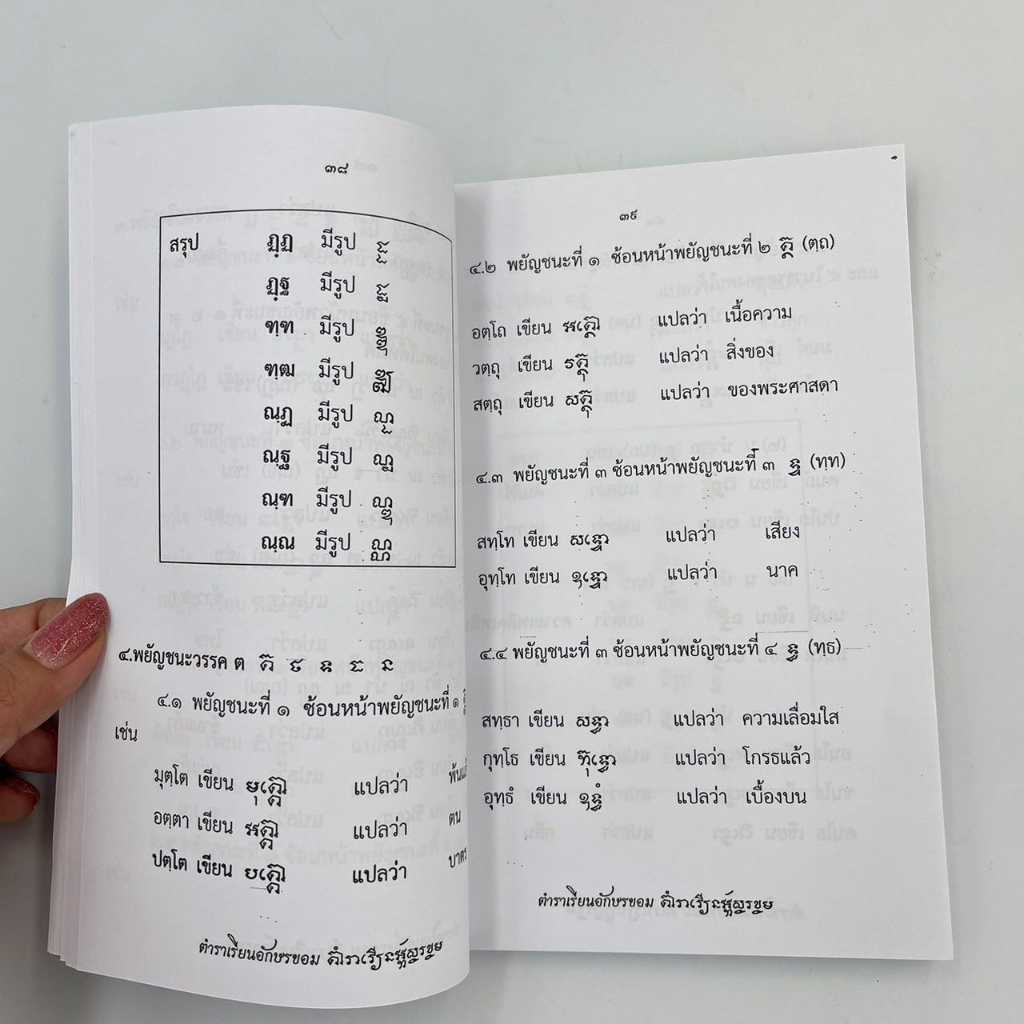 ๓๘
สรุป ฏฺฏ มีรูป ដ្ដ
ฏฺฐ มีรูป ដ្ឋ
ฑฺฑ มีรูป ឌ្ឌ
ฑฺฒ มีรูป ឌ្ឍ
ณฺฏ มีรูป ណ្ដ
ณฺฐ มีรูป ណ្ឋ
ณฺฑ มีรูป ណ្ឌ
ณฺณ มีรูป ណ្ណ
๔.พยัญชนะวรรค ต ត ថ ទ ធ ន
๔.๑ พยัญชนะที่ ๑ ซ้อนหน้าพยัญชนะที่ ๑
เช่น
มุตฺโต เขียน មុត្តោ แปลว่า
อตฺตา เขียน អត្តា แปลว่า ตน
ปตฺโต เขียน បត្តោ แปลว่า บาตร
ตำราเรียนอักษรขอม
๓๙
๔.๒ พยัญชนะที่ ๑ ซ้อนหน้าพยัญชนะที่ ๒ ត្ថ (ตฺถ)
อตฺโถ เขียน អត្ថោ แปลว่า เนื้อความ
วตฺถุ เขียน វត្ថុ แปลว่า สิ่งของ
สตฺถุ เขียน សត្ថុ แปลว่า ของพระศาสดา
๔.๓ พยัญชนะที่ ๓ ซ้อนหน้าพยัญชนะที่ ๓ ទ្ទ (ทฺท)
สทฺโท เขียน សទ្ទោ แปลว่า เสียง
อุทฺโท เขียน ឧទ្ទោ แปลว่า นาค
๔.๔ พยัญชนะที่ ๓ ซ้อนหน้าพยัญชนะที่ ๔ ទ្ធ (ทฺธ)
สทฺธา เขียน សទ្ធា แปลว่า ความเลื่อมใส
กุทฺโธ เขียน កុទ្ធោ แปลว่า โกรธแล้ว
อุทฺธํ เขียน ឧទ្ធំ แปลว่า เบื้องบน
ตำราเรียนอักษรขอม